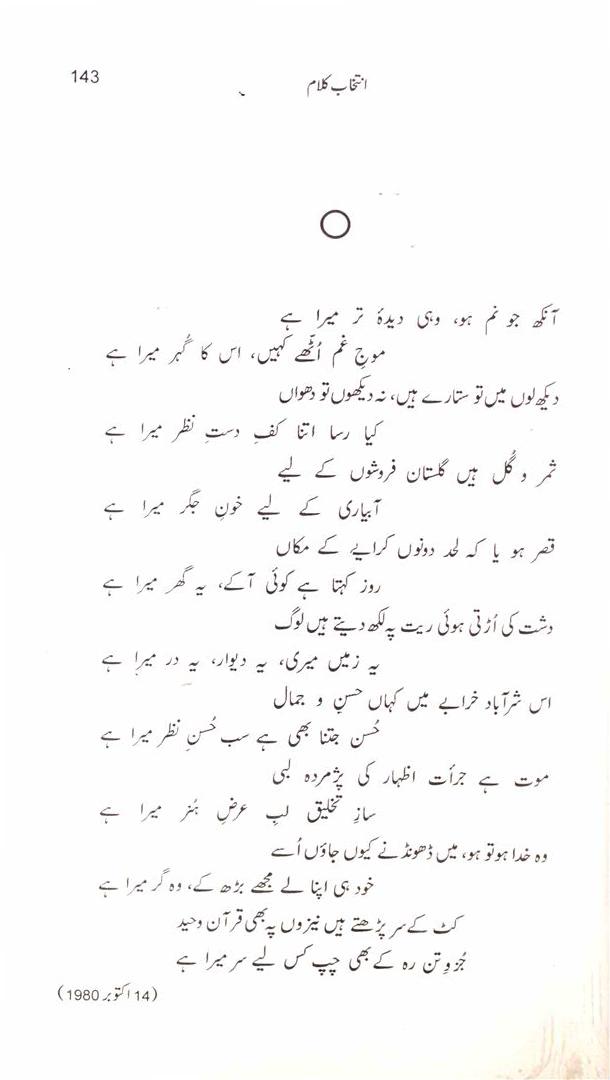 143
انتخاب کلام
آنکھ جو نم ہو، وہی دیدۂ تر میرا ہے
موجِ غم اُٹھّے کہیں، اس کا گُہر میرا ہے
دیکھ لوں میں تو ستارے ہیں، نہ دیکھوں تو دھواں
کیا رسا اتنا کفِ دستِ نظر میرا ہے
ثمر و گُل ہیں گلستان فروشوں کے لیے
آبیاری کے لیے خونِ جگر میرا ہے
قصر ہو یا کہ لحد دونوں کرایے کے مکاں
روز کہتا ہے کوئی آکے، یہ گھر میرا ہے
دشت کی اُڑتی ہوئی ریت پہ لکھ دیتے ہیں لوگ
یہ زمیں میری، یہ دیوار، یہ در میرا ہے
اس شرآباد خرابے میں کہاں حسن و جمال
حُسن جتنا بھی ہے سب حُسنِ نظر میرا ہے
موت ہے جرأت اظہار کی پژمردہ لبی
سازِ تخلیق لبِ عرضِ ہُنر میرا ہے
وہ خدا ہو تو ہو، میں ڈھونڈنے کیوں جاؤں اُسے
خود ہی اپنا لے مجھے بڑھ کے، وہ گر میرا ہے
کٹ کے سر پڑھتے ہیں نیزوں پہ بھی قرآن وحید
جُزوِ تن رہ کے بھی چپ کس لیے سر میرا ہے
(14 اکتوبر 1980)